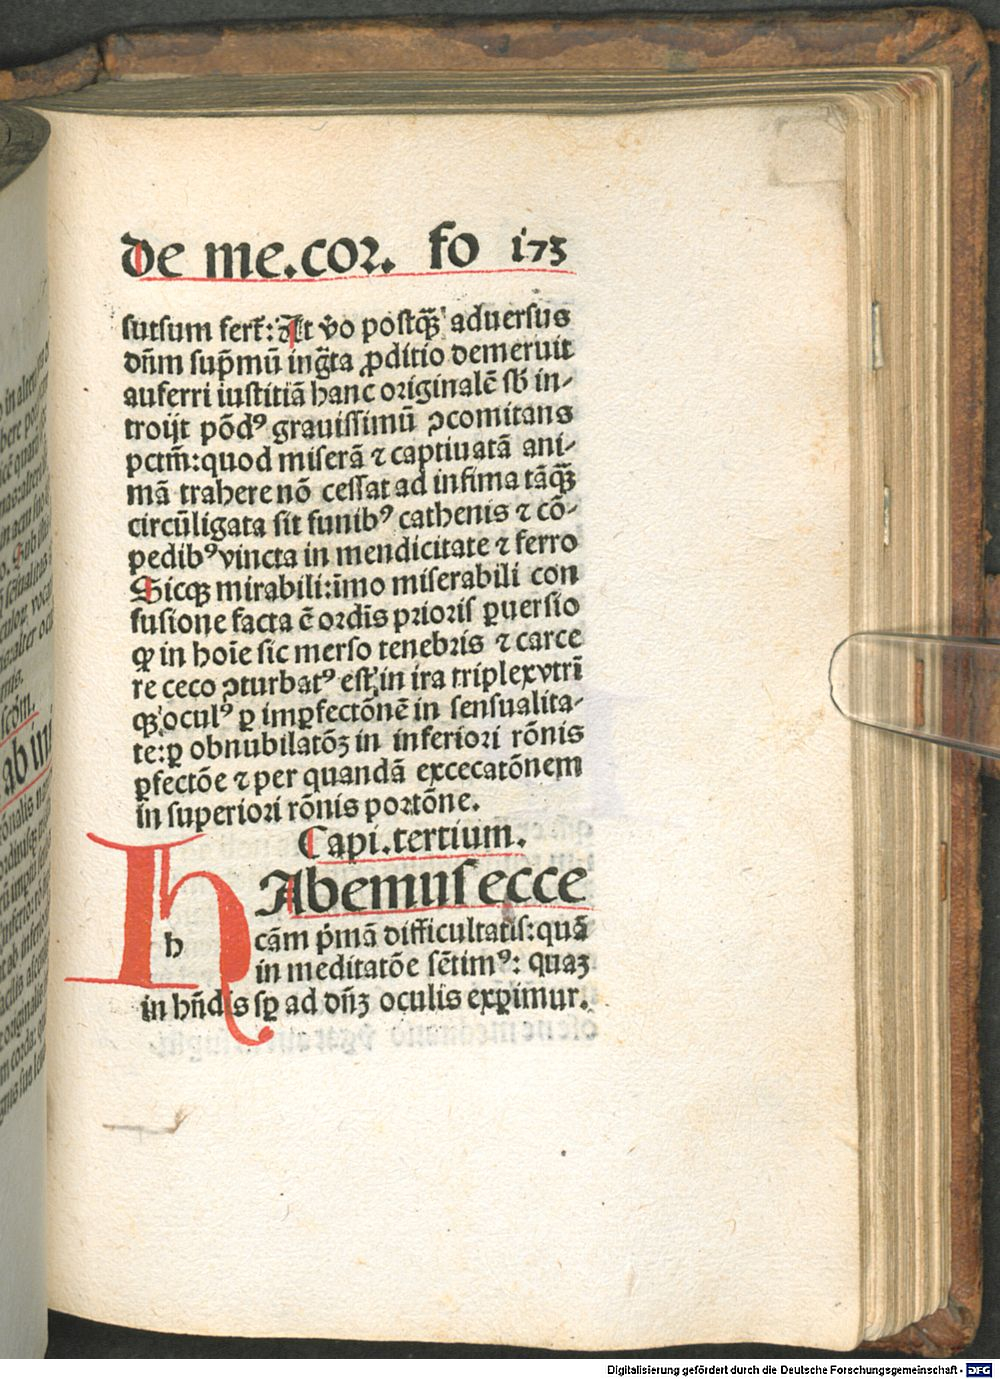 de me.cor. fo 173
sutsum fert̄: At v̊o postq̄ʒ aduersus
dn̄m sup̄mū ing̃ta ꝓditio demeruit
auferri iustitiā hanc originalē sb̄ in⸗
troijt pōdꝰ grauissimū ꝯcomitans
pctm̄: quod miserā ⁊ captiuatā ani⸗
mā trahere nō cessat ad infima tāq̄ʒ
circūligata sit funibꝰ cathenis ⁊ cō⸗
pedibꝰ vincta in mendicitate ⁊ ferro
Sicqʒ mirabili: īmo miserabili con
fusione facta ē ordīs prioris ꝑuersio
qꝛ in hoīe sic merso tenebris ⁊ carce
re ceco ꝯturbatꝰ est, in ira triplex vtrī
qʒ oculꝰ ꝑ imꝑfectōnē in sensualita⸗
te: ꝑ obnubilatōʒ in inferiori rōnis
ꝑfectōe ⁊ per quandā excecatōnem
in superiori rōnis portōne.
Capi. tertium.
h
HAbemus ecce
cām p̄mā difficultatis: quā
in meditatōe sētimꝰ: quaʒ
in hn̄dis sꝑ ad dn̄ʒ oculis exꝑimur.
Digitalisierung gefördert durch die Deutsche Forschungsgemeinschaft - DFG